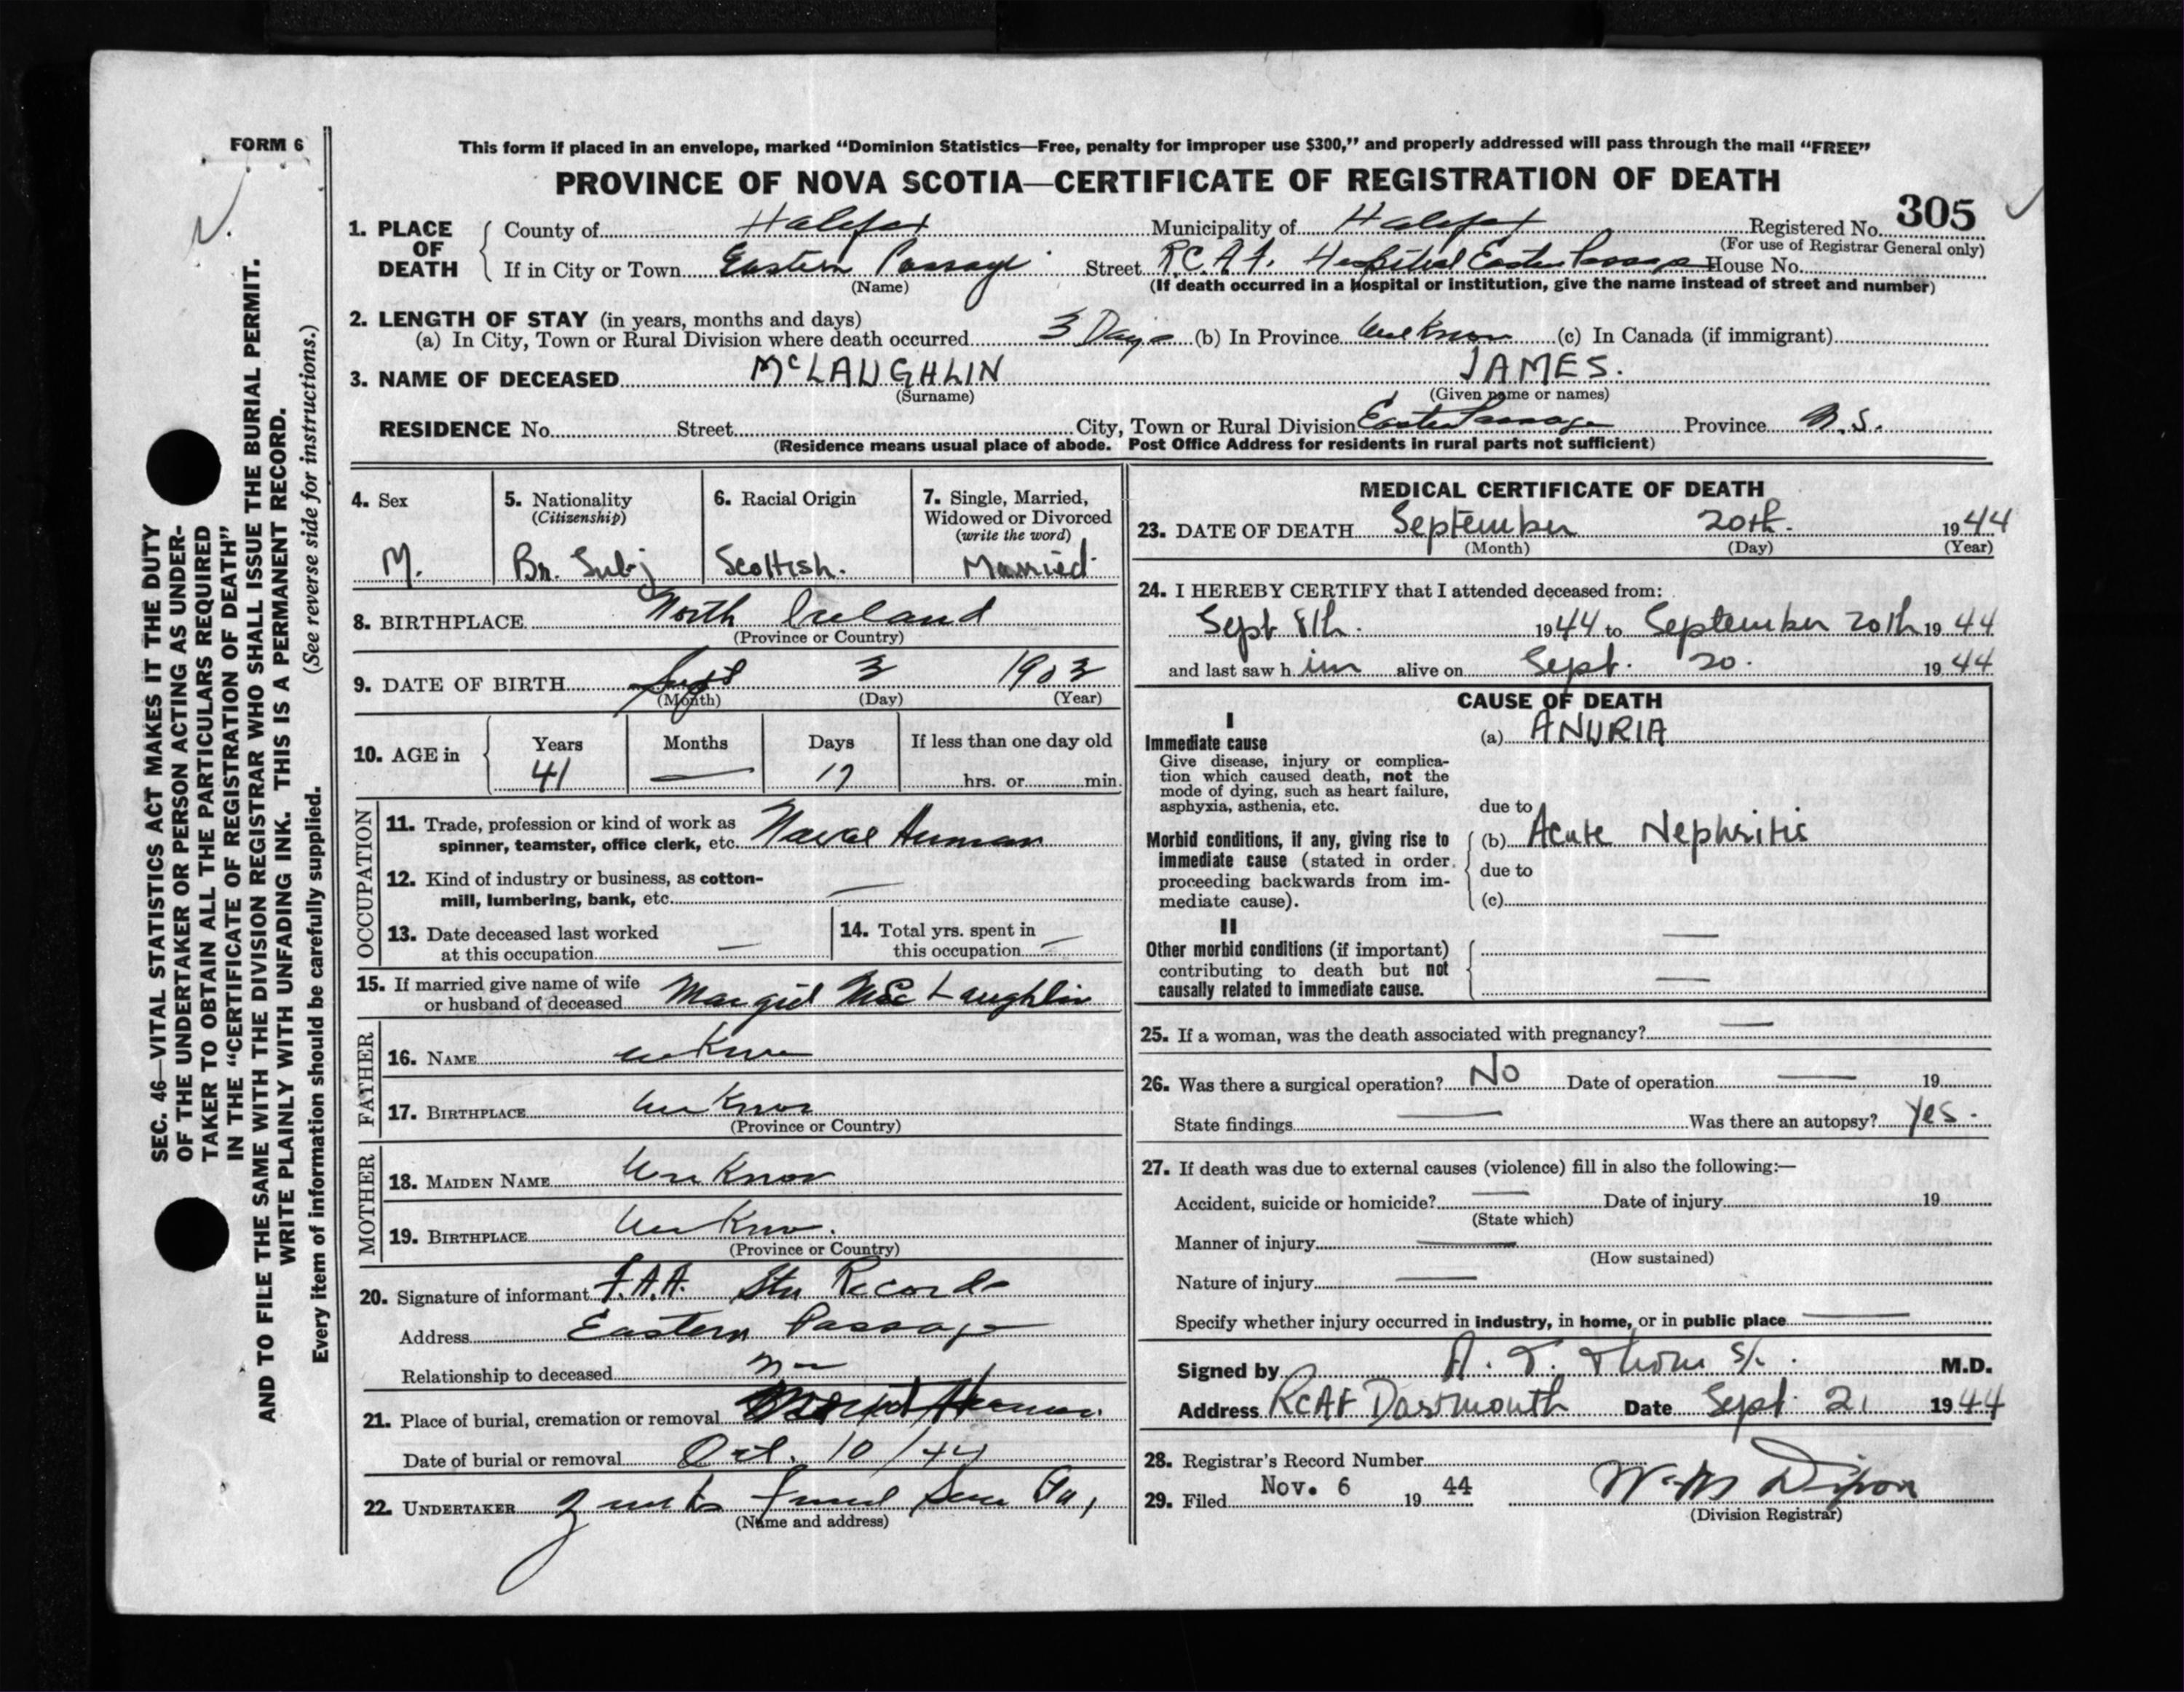 FORM 6
This form if placed in an envelope, marked "Dominion Statistics—Free, penalty for improper use $300," and properly addressed will pass through the mail "FREE"
PROVINCE OF NOVA SCOTIA—CERTIFICATE OF REGISTRATION OF DEATH
1. PLACE OF DEATH County of Halifax Municipality of Halifax Registered No. 305
(For use of Registrar General only)
If in City or Town Eastern Passage Street R.C.A.F. Hospital Eastern Passage House No.
(Name) (If death occurred in a hospital or institution, give the name instead of street and number)
2. LENGTH OF STAY (in years, months and days)
(a) In City, Town or Rural Division where death occurred 3 Days (b) In Province Unknown (c) In Canada (if immigrant)
3. NAME OF DECEASED McLAUGHLIN JAMES.
(Surname) (Given name or names)
RESIDENCE No. Street City, Town or Rural Division Eastern Passage Province N.S.
(Residence means usual place of abode. Post Office Address for residents in rural parts not sufficient)
4. Sex M.
5. Nationality (Citizenship) Br. Subj
6. Racial Origin Scottish.
7. Single, Married, Widowed or Divorced (write the word) Married
8. BIRTHPLACE North Ireland
(Province or Country)
9. DATE OF BIRTH Sept 3 1903
(Month) (Day) (Year)
10. AGE in Years Months Days If less than one day old
41 — 17 hrs. or min.
OCCUPATION
11. Trade, profession or kind of work as
spinner, teamster, office clerk, etc. Naval Airman
12. Kind of industry or business, as cotton-
mill, lumbering, bank, etc. —
13. Date deceased last worked
at this occupation —
14. Total yrs. spent in
this occupation —
15. If married give name of wife
or husband of deceased McLaughlin
FATHER
16. NAME Unknown
17. BIRTHPLACE Unknown
(Province or Country)
MOTHER
18. MAIDEN NAME Unknown
19. BIRTHPLACE Unknown.
(Province or Country)
20. Signature of informant F.A.A. Stn Records
Address Eastern Passage
Relationship to deceased
21. Place of burial, cremation or removal
Date of burial or removal Oct. 10/44
22. UNDERTAKER
(Name and address)
MEDICAL CERTIFICATE OF DEATH
23. DATE OF DEATH September 20th. 1944
(Month) (Day) (Year)
24. I HEREBY CERTIFY that I attended deceased from:
Sept 8th. 1944 to September 20th 1944
and last saw h im alive on Sept. 20. 1944
CAUSE OF DEATH
I
Immediate cause
Give disease, injury or complica-
tion which caused death, not the
mode of dying, such as heart failure,
asphyxia, asthenia, etc.
(a) ANURIA
due to
Morbid conditions, if any, giving rise to
immediate cause (stated in order
proceeding backwards from im-
mediate cause).
(b) Acute Nephritis
due to
(c)
II
Other morbid conditions (if important)
contributing to death but not
causally related to immediate cause.
—
—
25. If a woman, was the death associated with pregnancy? —
26. Was there a surgical operation? No Date of operation — 19
State findings — Was there an autopsy? Yes.
27. If death was due to external causes (violence) fill in also the following:—
Accident, suicide or homicide? — Date of injury 19
(State which)
Manner of injury —
(How sustained)
Nature of injury —
Specify whether injury occurred in industry, in home, or in public place —
Signed by M.D.
Address RCAF Dartmouth Date Sept 21 1944
28. Registrar's Record Number
29. Filed Nov. 6 19 44 Dixon
(Division Registrar)
SEC. 46—VITAL STATISTICS ACT MAKES IT THE DUTY
OF THE UNDERTAKER OR PERSON ACTING AS UNDER-
TAKER TO OBTAIN ALL THE PARTICULARS REQUIRED
IN THE "CERTIFICATE OF REGISTRATION OF DEATH"
AND TO FILE THE SAME WITH THE DIVISION REGISTRAR WHO SHALL ISSUE THE BURIAL PERMIT.
WRITE PLAINLY WITH UNFADING INK. THIS IS A PERMANENT RECORD.
Every item of information should be carefully supplied. (See reverse side for instructions.)